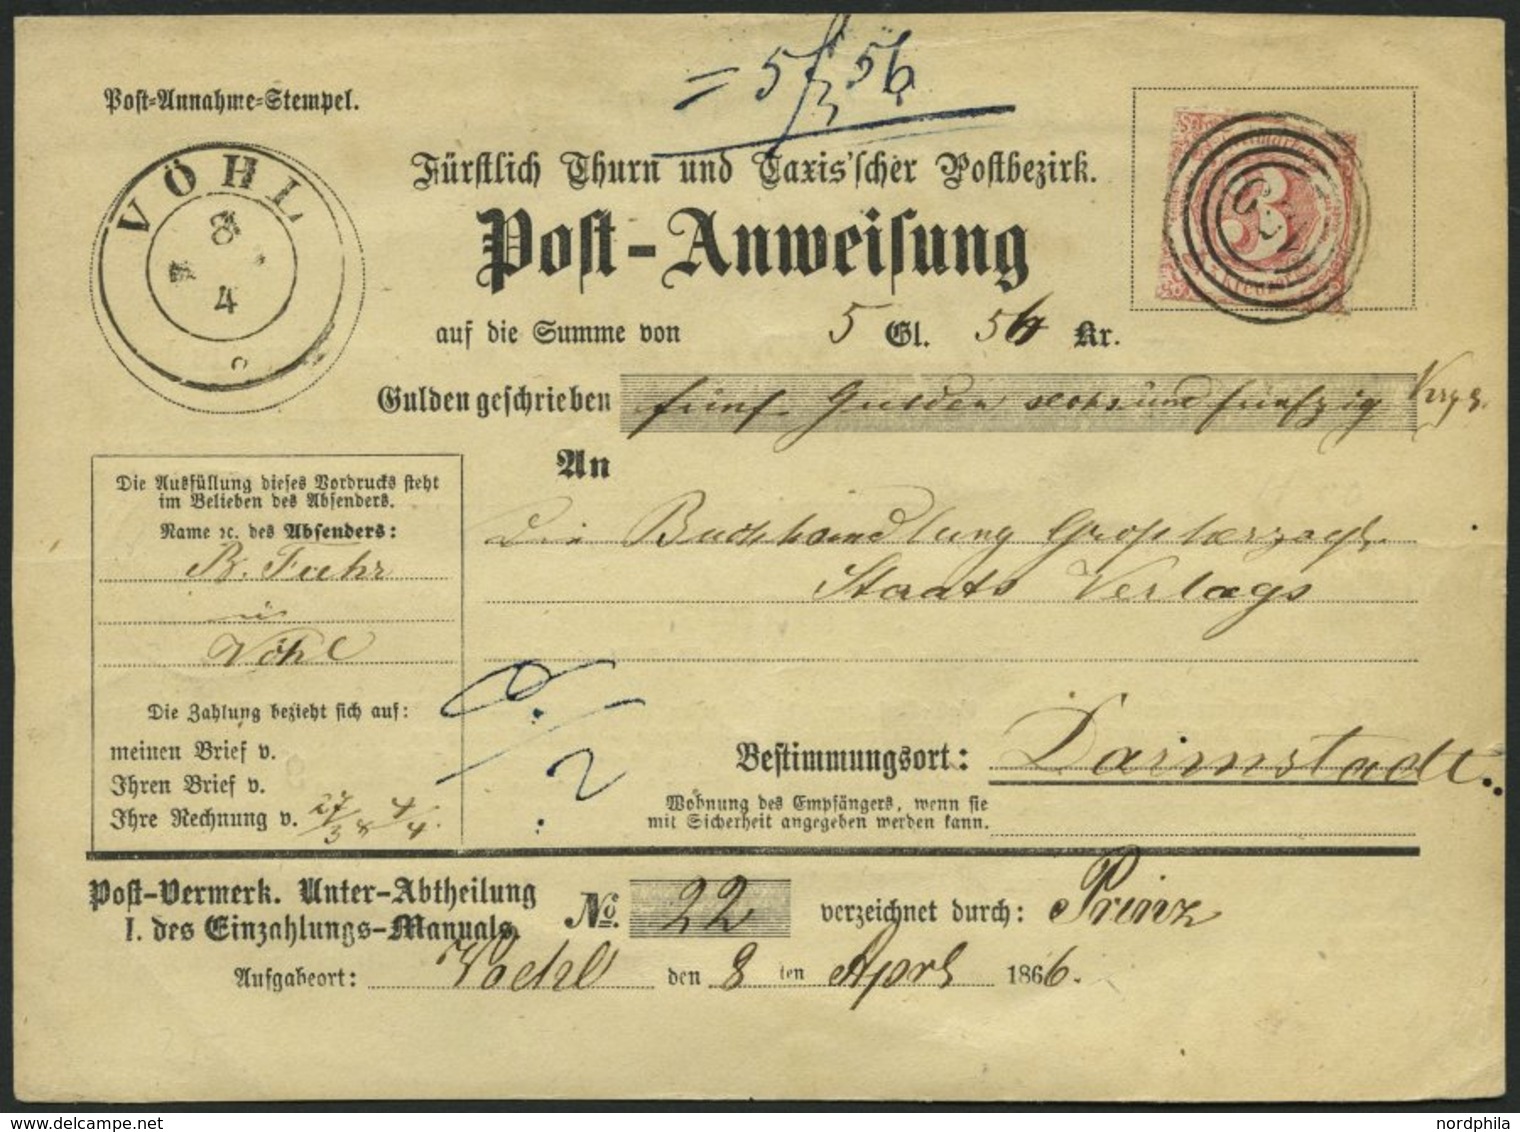 = 5 f 56
Post-Annahme-Stempel.
VÖHL
8
4
3
Fürstlich Thurn und Taxis'scher Postbezirk.
Post-Anweisung
auf die Summe von 5 Gl. 56 Kr.
Gulden geschrieben fünf Gulden sechs und fünfzig
An
Die Ausfüllung dieses Vordrucks steht
im Belieben des Absenders.
Name ꝛc. des Absenders:
B. Fuhr
in
Vöhl
die Buchhandlung Großherzogl.
Staats Verlags
Die Zahlung bezieht sich auf:
meinen Brief v.
Ihren Brief v.
Ihre Rechnung v. 27/3
Bestimmungsort: Darmstadt.
Wohnung des Empfängers, wenn sie
mit Sicherheit angegeben werden kann.
Post-Vermerk. Unter-Abtheilung
I. des Einzahlungs-Manuals.
No. 22 verzeichnet durch: Prinz
Aufgabeort: Voehl den 8 ten April 1866.
nordphila